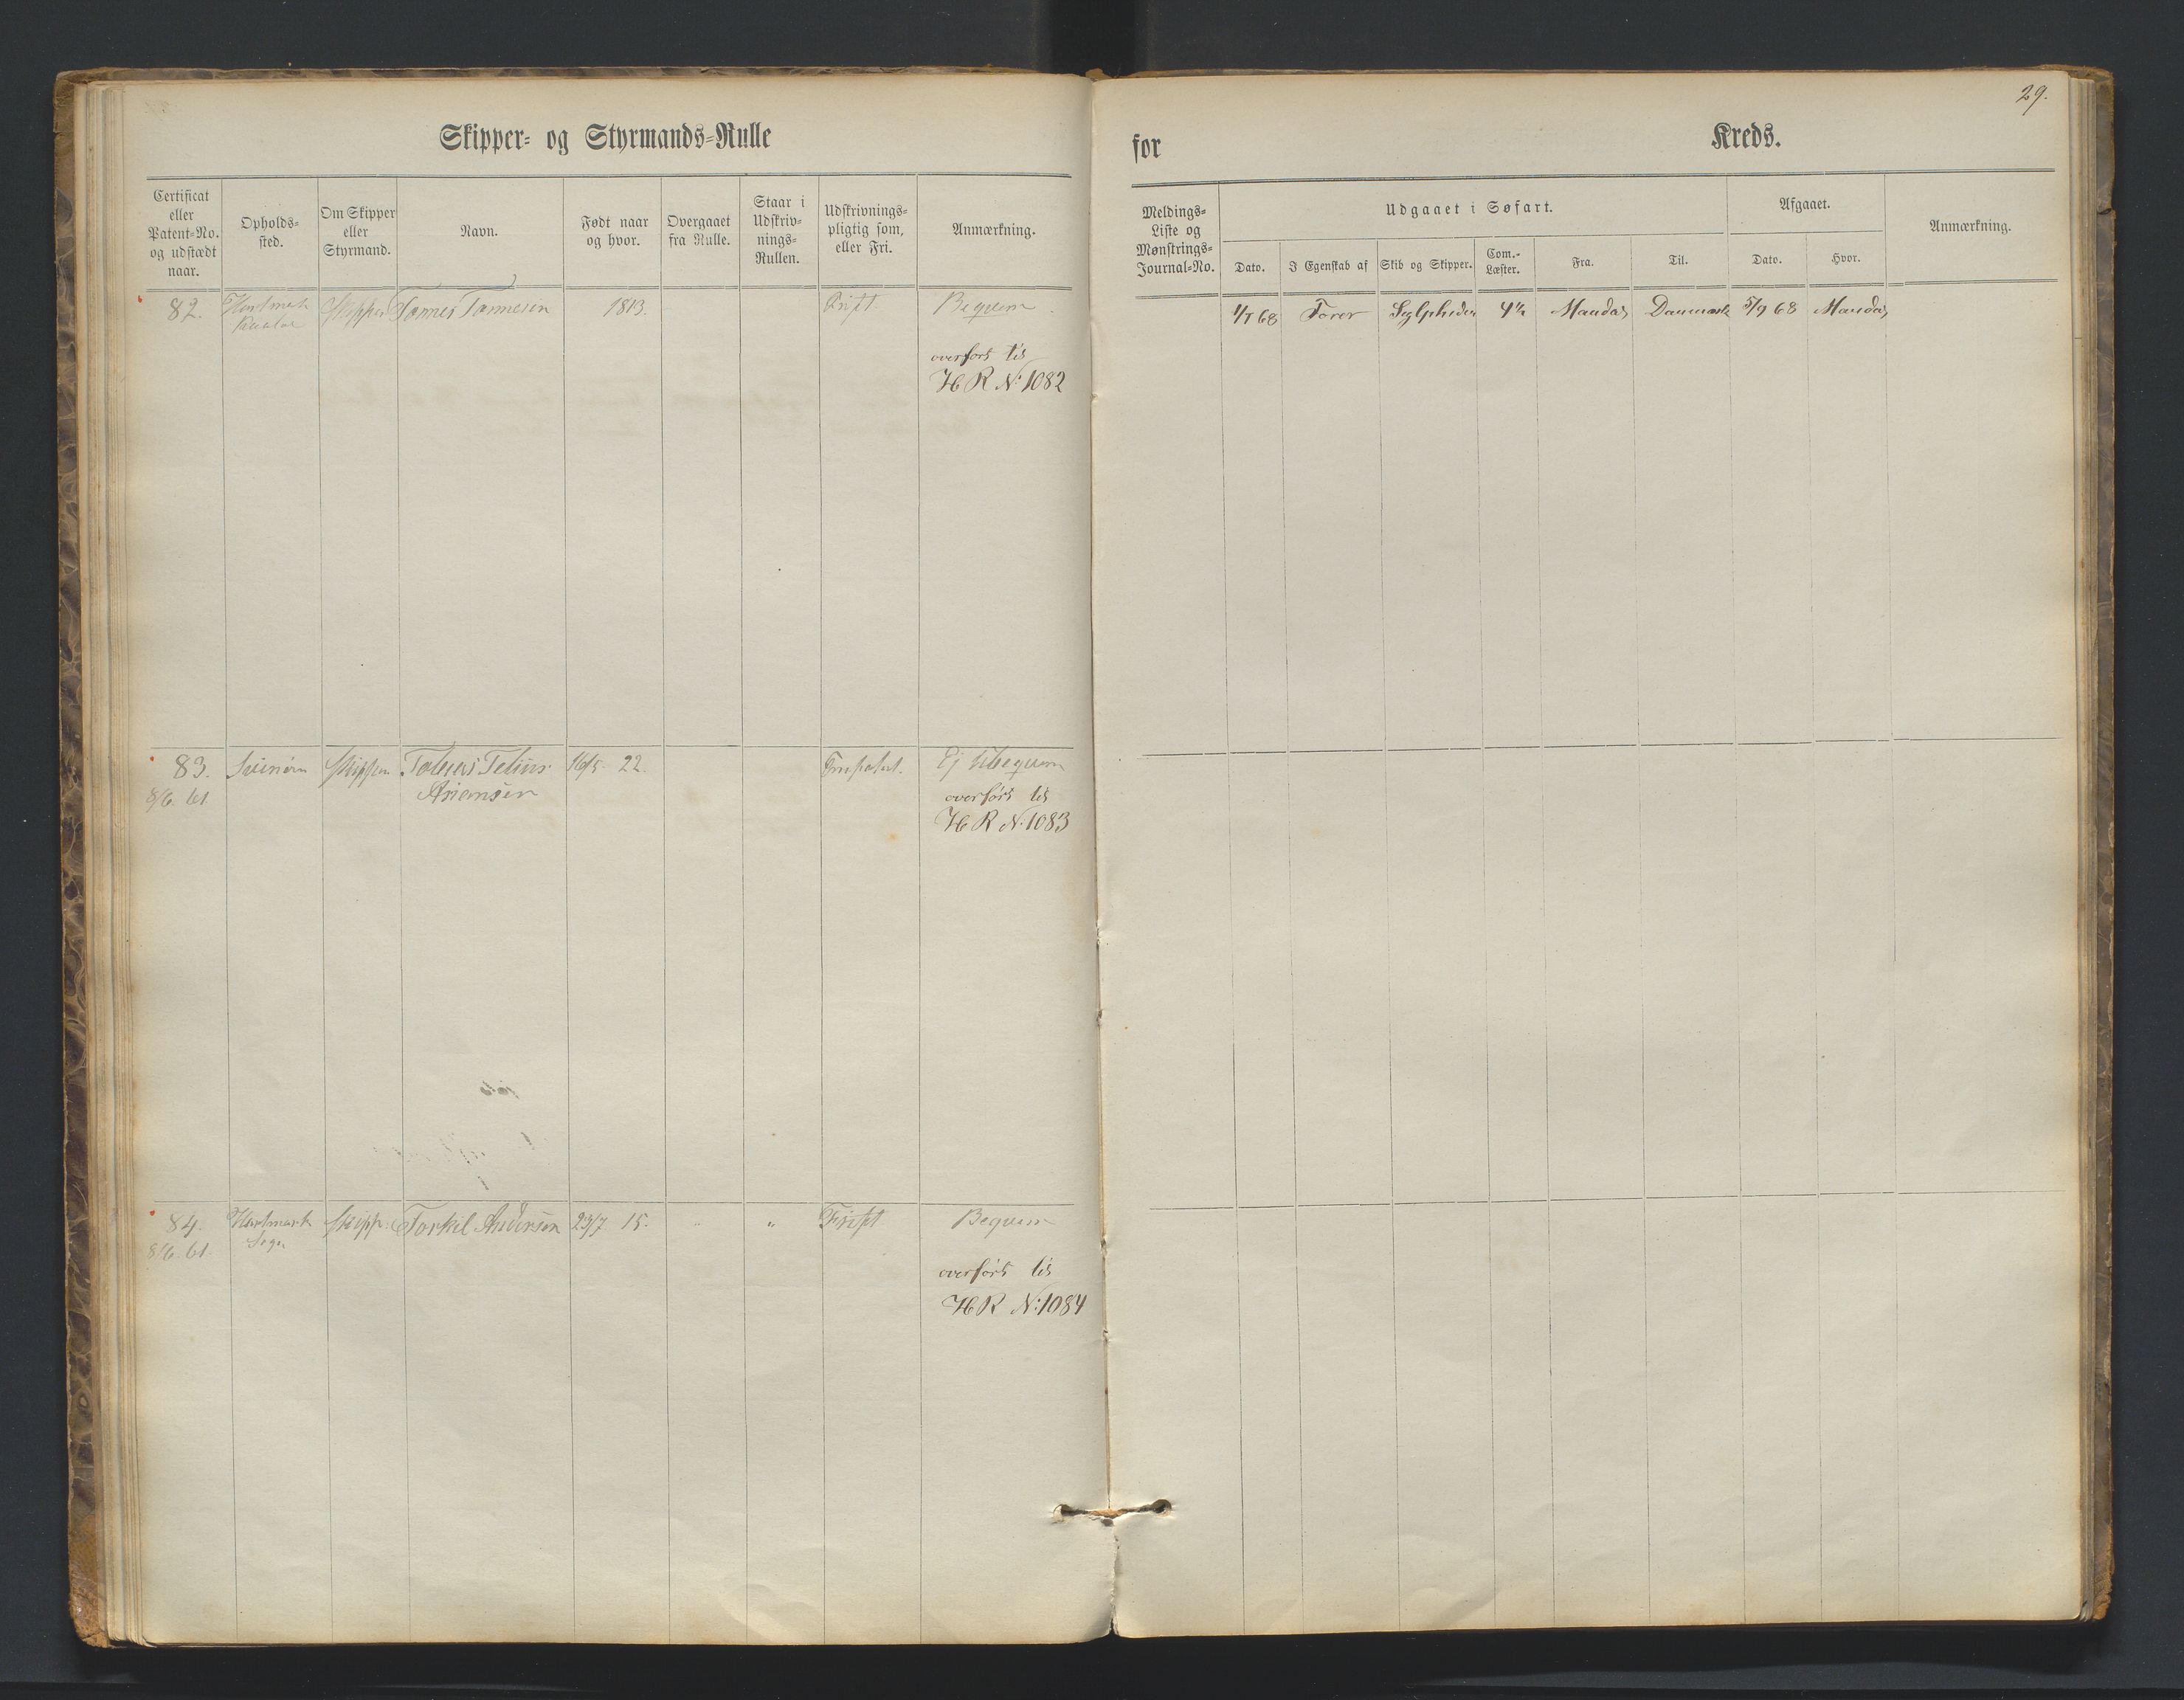 29.
Skipper- og Styrmands-Rulle
for Kreds.
Certificat eller Patent-No. og udstædt naar.
Opholds-sted.
Om Skipper eller Styrmand.
Navn.
Født naar og hvor.
Overgaaet fra Rulle.
Staar i Udskriv-nings-Rullen.
Udskrivnings-pligtig som, eller Fri.
Anmærkning.
Meldings-Liste og Mønstrings-Journal-No.
Udgaaet i Søfart.
Dato.
I Egenskab af
Skib og Skipper.
Com.-Læster.
Fra.
Til.
Afgaaet.
Dato.
Hvor.
Anmærkning.
82. Skipper Tønnes Tønnesen 1813. Bequem
overført til
H R No 1082
68 Fører Sylphiden Mandal Danmark 5/9 68 Mandal
83. Svinøen Skipper 16/5 22. Ej Ubequem
8/6. 61 overført til
H R No 1083
84. Hartmark Skipp: Torkil Andersen 23/7 15. „ Bequem
8/6. 61.
overført til
H R No: 1084